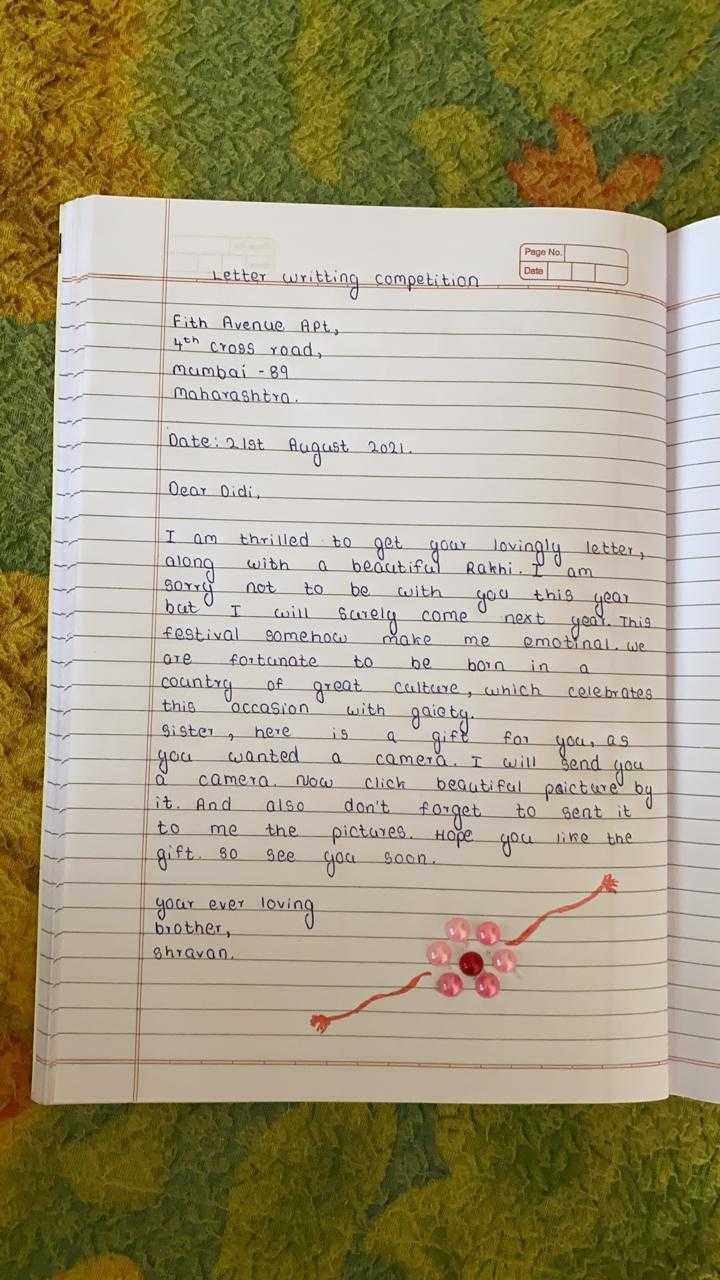 Page No.
Date
Letter writting competition
Fith Avenue Apt,
4th cross road,
mumbai - 89
maharashtra.
Date: 21st August 2021.
Dear Didi,
I am thrilled to get your lovingly letter,
along with a beautiful Rakhi. I am
sorry not to be with you this year
but I will surely come next year. This
festival somehow make me emotinal. we
are fortunate to be born in a
country of great culture, which celebrates
this occasion with gaiety.
sister, here is a gift for you, as
you wanted a camera. I will send you
a camera. Now click beautiful paicture by
it. And also don't forget to sent it
to me the pictures. Hope you like the
gift. so see you soon.
your ever loving
brother,
shravan.